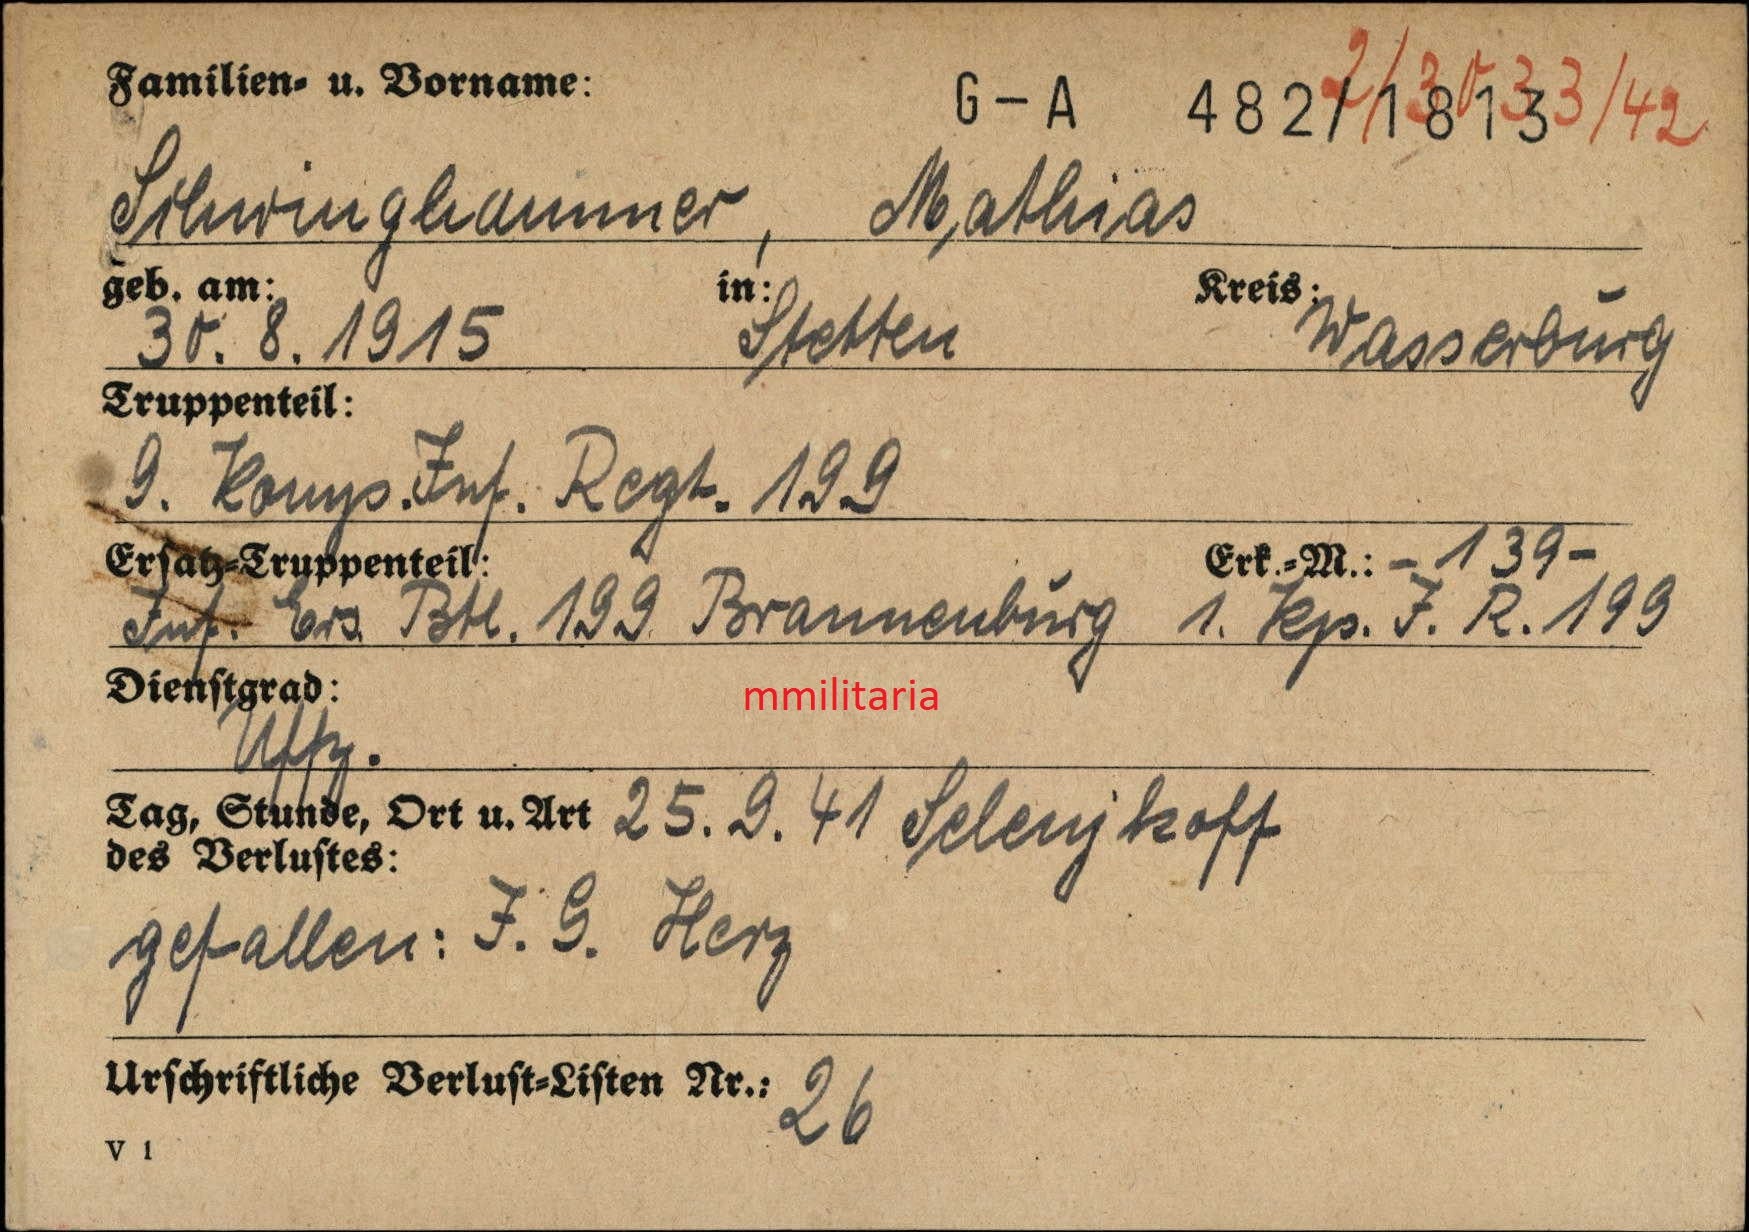 Familien- u. Vorname:
G-A 482/1813
2/3033/42
Schwinghammer, Mathias
geb. am: in: Kreis:
30. 8. 1915 Stetten Wasserburg
Truppenteil:
9. Komp. Inf. Regt. 199
Ersatz-Truppenteil: Erk.-M.: -139-
Inf. Ers. Btl. 199 Brannenburg 1. Kp. I. R. 199
Dienstgrad:
mmilitaria
Uffz.
Tag, Stunde, Ort u. Art 25. 9. 41 Selenjkoff
des Verlustes:
gefallen: I. G. Herz
Urschriftliche Verlust-Listen Nr.: 26
V 1